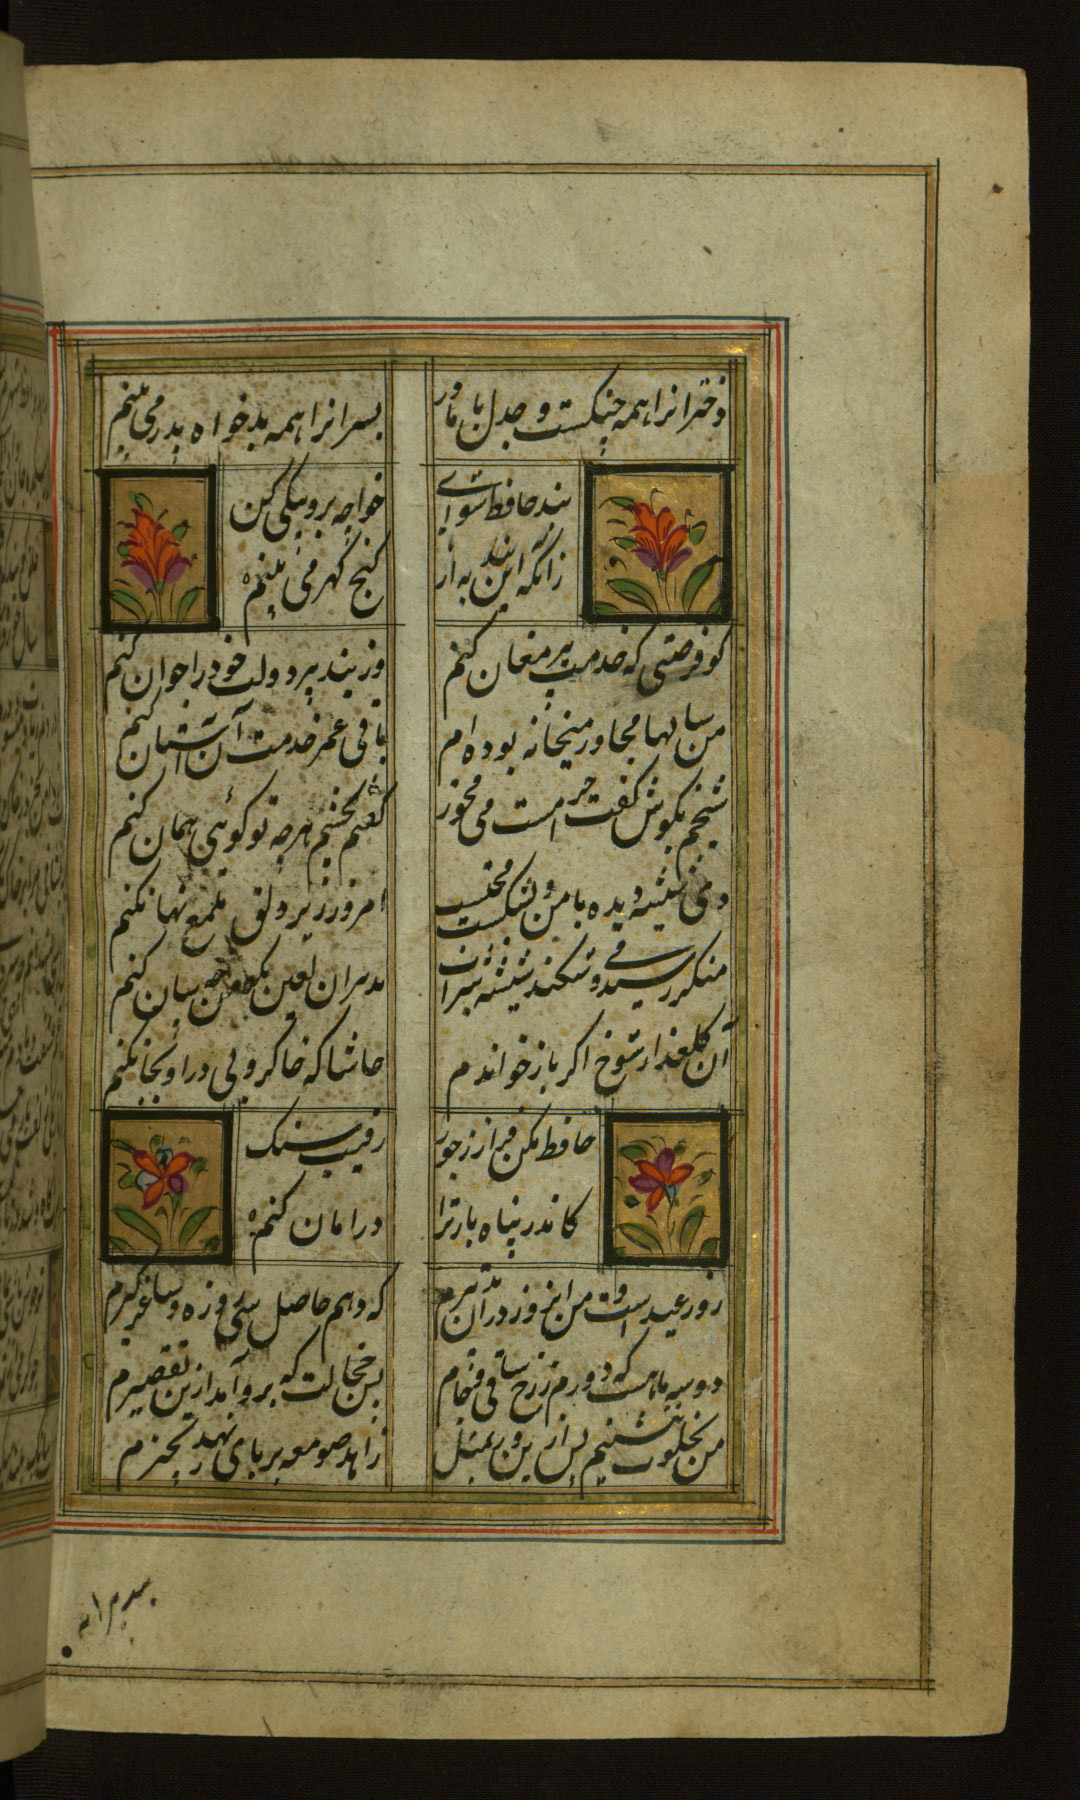 دخترانرا همه جنکست و جدل با مادر
پسرانرا همه بدخواه پدر می بینم
پند حافظ بشنو ای
خواجه برو نیکی کن
زانکه این پند به از
کنج کهر می بینم
کو فرصتی که خدمت پیر مغان کنم
وز پند پیر دولت خود را جوان کنم
من سالها مجاور میخانه بوده ام
باقی عمر خدمت آن آستان کنم
شیخم بکوش کفت حرامست می مخور
کفتم بچشم هرچه تو کوئی همان کنم
دی شیشه دیده با من و بشکست محتسب
امروز زیر دلق ملمع نهان کنم
آن کلعذار شوخ اکر باز خواندم
حاشا که خاکروبی در او بجان کنم
حافظ مکن فرار ز جور
رقیب سنک
کاندر پناه یار ترا
در امان کنم
روز عید است و من امروز در ان تدبیرم
که دهم حاصل سی روزه و ساغر کیرم
دو سه ماهست که دورم ز رخ ساقی و جام
بس خجالت که برو آمد ازین تقصیرم
من بخلوت ننشینم پس ازین ور بمثل
زاهد صومعه بر پای نهد زنجیرم